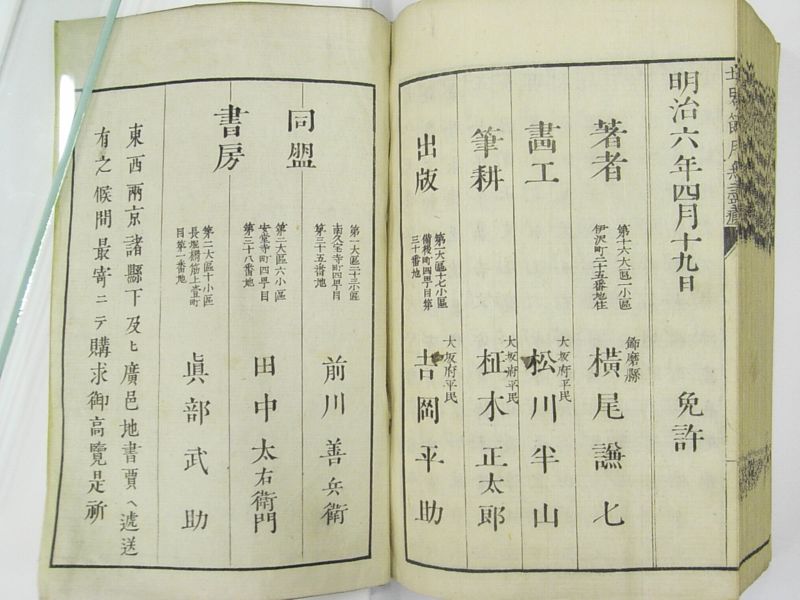 明治六年四月十九日 免許
著者 第十六大區一小區 伊沢町二十五番地住 飾磨縣 橫尾謙七
畵工 大坂府平民 松川半山
筆耕 大坂府平民 柾木正太郎
出版 第一大區十七小區 備後町四丁目第三十番地 大坂府平民 吉岡平助
同盟書房
第一大區二十三小區 南久宝寺町四丁目 第三十五番地 前川善兵衛
第二大區六小區 安堂寺町四丁目 第三十八番地 田中太右衛門
第二大區十小區 長堀橋筋上壹町目第一番地 眞部武助
東西兩京諸縣下及ヒ廣邑地書賈ヘ遞送
有之候間最寄ニテ購求御高覽是祈